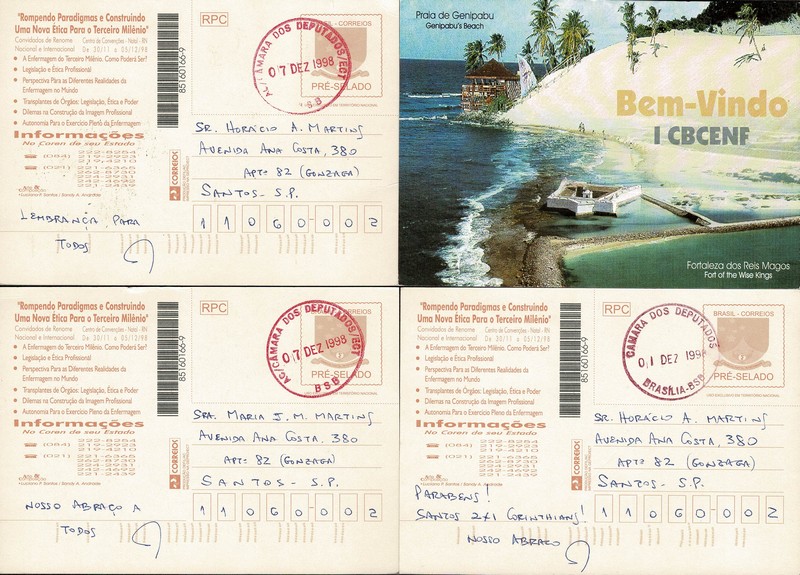 "Rompendo Paradigmas e Construindo
Uma Nova Ética Para o Terceiro Milênio"
Convidados de Renome Centro de Convenções - Natal - RN
Nacional e Internacional De 30/11 a 05/12/98
• A Enfermagem do Terceiro Milênio. Como Poderá Ser?
• Legislação e Ética Profissional
• Perspectiva Para as Diferentes Realidades da
Enfermagem no Mundo
• Transplantes de Órgãos: Legislação, Ética e Poder
• Dilemas na Construção da Imagem Profissional
• Autonomia Para o Exercício Pleno da Enfermagem
Informações
No Coren de seu Estado
(084) 222-8254
219-2923
219-4210
(021) 221-6365
224-2931
242-2439
Luciano P. Santos / Sandy A. Andrade
LEMBRANÇA PARA
TODOS
85160166-9
RPC
CORREIOS
PRÉ-SELADO
AC/CÂMARA DOS DEPUTADOS/ECT
07 DEZ 1998
BSB
CORREIOS
SR. HORÁCIO A. MARTINS
AVENIDA ANA COSTA, 380
APTº 82 (GONZAGA)
SANTOS - S.P.
11060-002
Praia de Genipabu
Genipabu's Beach
Bem-Vindo
I CBCENF
Fortaleza dos Reis Magos
Fort of the Wise Kings
"Rompendo Paradigmas e Construindo
Uma Nova Ética Para o Terceiro Milênio"
Convidados de Renome Centro de Convenções - Natal - RN
Nacional e Internacional De 30/11 a 05/12/98
• A Enfermagem do Terceiro Milênio. Como Poderá Ser?
• Legislação e Ética Profissional
• Perspectiva Para as Diferentes Realidades da
Enfermagem no Mundo
• Transplantes de Órgãos: Legislação, Ética e Poder
• Dilemas na Construção da Imagem Profissional
• Autonomia Para o Exercício Pleno da Enfermagem
Informações
No Coren de seu Estado
(084) 222-8254
219-2923
219-4210
(021) 221-6365
224-2931
242-2439
Luciano P. Santos / Sandy A. Andrade
NOSSO ABRAÇO A
TODOS
85160166-9
RPC
CORREIOS
PRÉ-SELADO
AC/CÂMARA DOS DEPUTADOS/ECT
07 DEZ 1998
BSB
CORREIOS
SRA. MARIA J. M. MARTINS
AVENIDA ANA COSTA, 380
APTº 82 (GONZAGA)
SANTOS - S.P.
11060-002
"Rompendo Paradigmas e Construindo
Uma Nova Ética Para o Terceiro Milênio"
Convidados de Renome Centro de Convenções - Natal - RN
Nacional e Internacional De 30/11 a 05/12/98
• A Enfermagem do Terceiro Milênio. Como Poderá Ser?
• Legislação e Ética Profissional
• Perspectiva Para as Diferentes Realidades da
Enfermagem no Mundo
• Transplantes de Órgãos: Legislação, Ética e Poder
• Dilemas na Construção da Imagem Profissional
• Autonomia Para o Exercício Pleno da Enfermagem
Informações
No Coren de seu Estado
(084) 222-8254
219-2923
219-4210
(021) 221-6365
224-2931
242-2439
Luciano P. Santos / Sandy A. Andrade
PARABENS!
SANTOS 2X1 CORINTHIANS!
NOSSO ABRAÇO
85160166-9
RPC
BRASIL - CORREIOS
PRÉ-SELADO
CÂMARA DOS DEPUTADOS
01 DEZ 1998
BRASÍLIA-BSB
CORREIOS
SR. HORÁCIO A. MARTINS
AVENIDA ANA COSTA, 380
APTº 82 (GONZAGA)
SANTOS - S.P.
11060-002